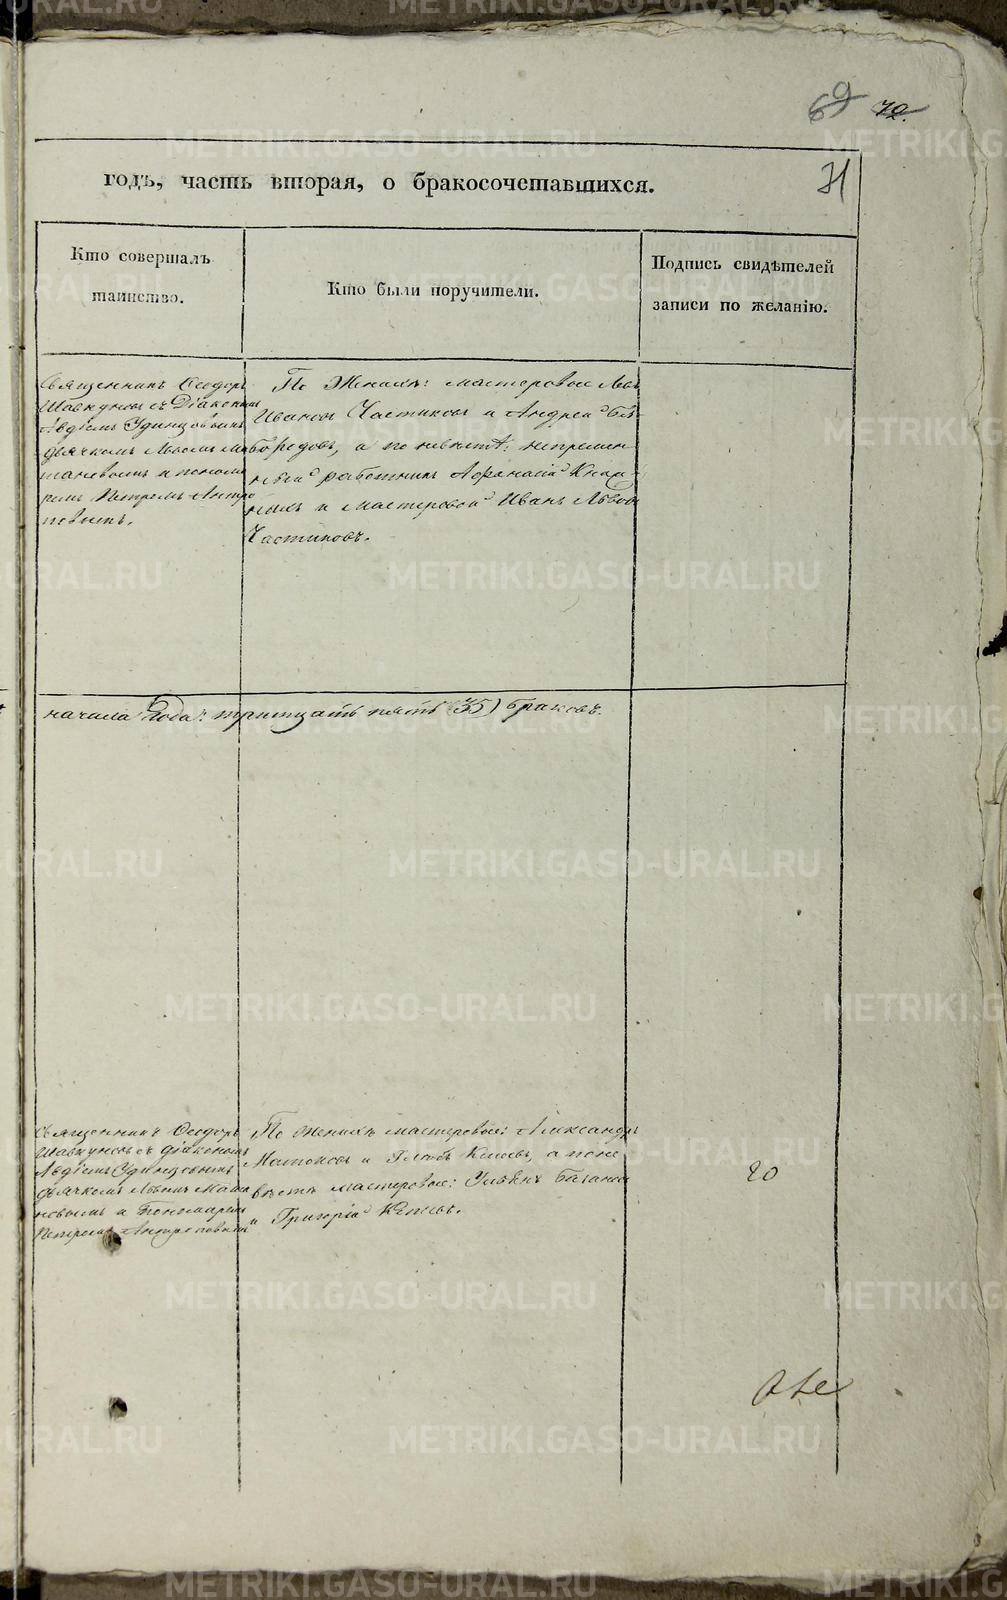 69 70.
71
годъ, часть вторая, о бракосочетавшихся.
Кто совершалъ
таинство.
Кто были поручители.
Подпись свидѣтелей
записи по желанію.
Священникъ Ѳеодоръ
Шавкуновъ съ Діакономъ
Авдіемъ Удинцовымъ
дьячкомъ Львомъ
и понома
ремъ Петромъ Антро
повымъ.
По Женихѣ: мастеровые Левъ
Ивановъ Частиковъ и Андрей
а по невѣстѣ: непремен
ный работникъ Афанасій
и мастеровой Иванъ Львовъ
Частиковъ.
начала Года: тритцать пять (35) браковъ.
Священникъ Ѳеодоръ
Шавкуновъ съ діакономъ
Авдіемъ Удинцовымъ
дьячкомъ Львомъ
и Пономаремъ
Петромъ Антроповымъ
По женихѣ мастеровые: Александръ
и Глѣбъ а по не
вѣстѣ мастеровые:
и Григорій
20
METRIKI.GASO-URAL.RU